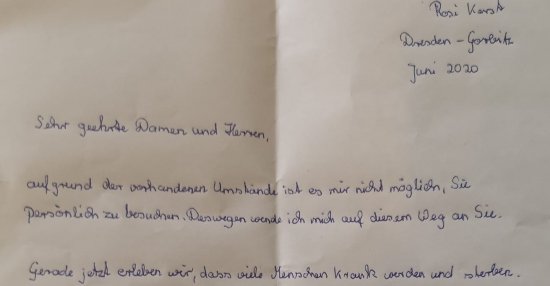 Rosi Karst
Dresden - Gorbitz
Juni 2020
Sehr geehrte Damen und Herren,
aufgrund der vorhandenen Umstände ist es mir nicht möglich, Sie
persönlich zu besuchen. Deswegen wende ich mich auf diesem Weg an Sie.
Gerade jetzt erleben wir, dass viele Menschen krank werden und sterben.